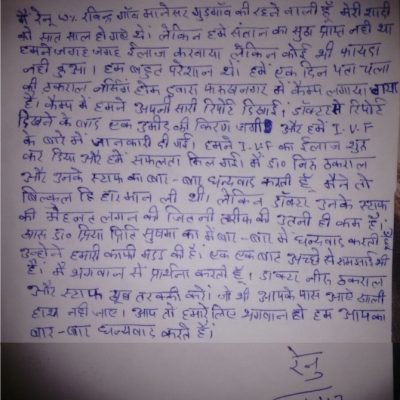 मैं रेनू w/o रविन्द्र गाँव मानेसर गुडगाँव की रहने वाली हूँ मेरी शादी
को सात साल हो गऐ थे। लेकिन हमें संतान का सुख प्राप्त नही था
हमने जगह जगह ईलाज करवाया लेकिन कोई भी फायदा
नही हुआ। हम बहुत परेशान थे। हमे एक दिन पता चला
की ठकराल नर्सिंग होम द्वारा फरुखनगर में कैम्प लगाया गया
है। कैम्प में हमने अपनी सारी रिपोर्ट दिखाई, डॉक्टर ने रिपोर्ट
देखने के बाद एक उमीद की किरण जगी और हमे I.V.F
के बारे में जानकारी दी गई। हमने I.V.F का ईलाज शुरु
कर दिया और हमे सफलता मिल गई। मैं डा० निरु ठकराल
और उनके स्टाफ का बार-बार धन्यवाद करती हूँ मैने तो
बिल्कुल हि हार मान ली थी। लेकिन डॉक्टर उनके स्टाफ
की मेहनत लगन की जितनी तारीफ की उतनी ही कम है।
डा० प्रिया प्रिति सुषमा का मैं बार-बार मे धन्यवाद करती हूँ
उन्होने हमारी काफी मदद की है। एक एक बात अच्छे से समझाई
है। मैं भगवान से प्रार्थना करती हूँ। डाक्टर नीरु ठकराल
और स्टाफ खूब तरक्की करे। जो भी आपके पास आऐ खाली
हाथ नही जाए। आप तो हमारे लिए भगवान हो हम आपका
बार-बार धन्यवाद करते है।
रेनु